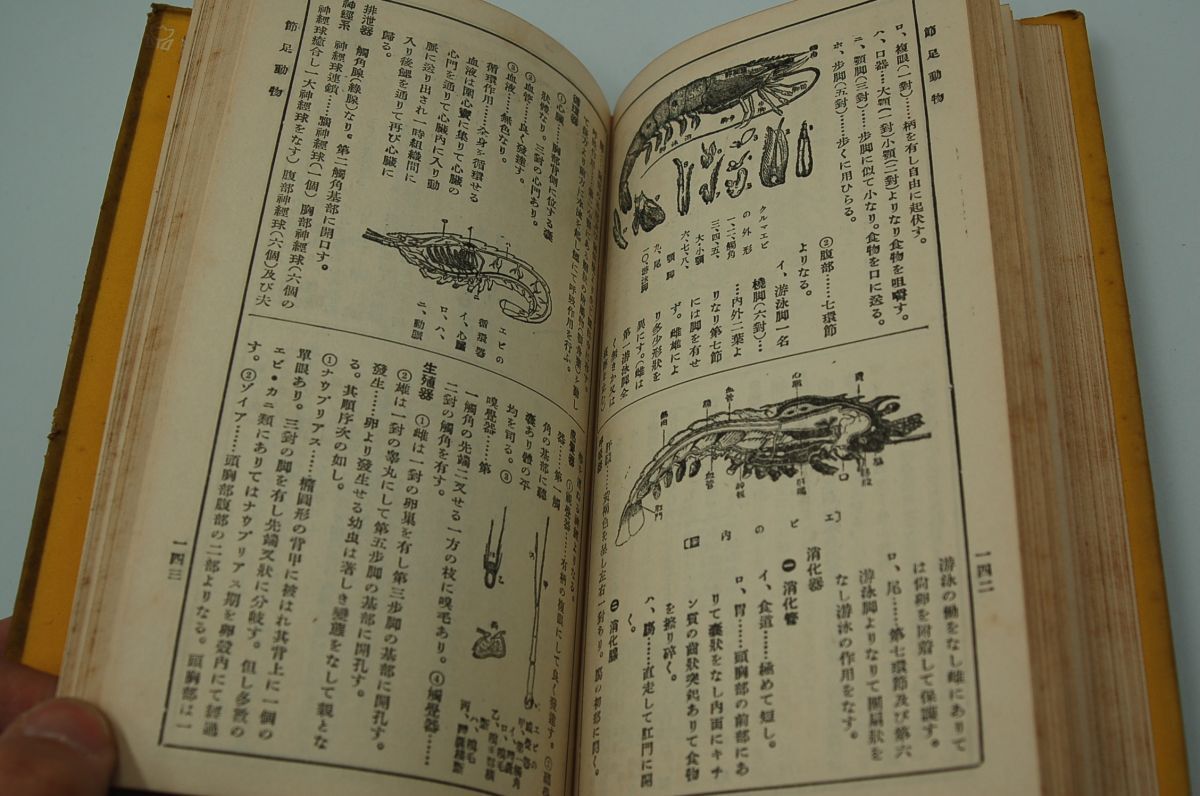 節足動物
ロ、複眼(一對)……柄を有し自由に起伏す。
ハ、口器…大顎(一對)小顎(二對)よりなり食物を咀嚼す。
ニ、顎脚(三對)……步脚に似て小なり。食物を口に送る。
ホ、步脚(五對)……步くに用ひらる。
②腹部……七環節
よりなる。
イ、游泳脚一名
橈脚(六對)…
…內外二葉よ
りなり第七節
には脚を有せ
ず。雌雄によ
り多少形狀を
異にす。(雌は
第一游泳脚全
クルマエビ
の外形
一、二、觸角
三、四、五、
大、小顎
六、七、八、
顎脚
九、尾
一〇、游泳脚
一四二
游泳の働をなし雌にありて
は尙卵を附着して保護す。
ロ、尾……第七環節及び第六
游泳脚よりなりて團扇狀を
なし游泳の作用をなす。
消化器
一 消化管
イ、食道……極めて短し。
ロ、胃……頭胸部の前部にあ
りて囊狀をなし內面にキチ
ン質の齒狀突起ありて食物
を擦り碎く。
ハ、腸……直走して肛門に開
く。
二 消化腺
胃
心臟
血管
腸
肛門
口
血管
エビの內
節足動物
循環器
①心臟……胸部背側に位する囊
狀體なり。三對の心門あり。
②血管……良く發達す。
③血液……無色なり。
循環作用……全身を循環せる
血液は圍心竇に集りて心臟の
心門を通りて心臟內に入り動
脈に送り出され一時組織間に
入り後鰓を通りて再び心臟に
歸る。
エビの
循環器
イ、心臟
ロ、ハ、
ニ、動脈
排泄器 觸角腺(綠腺)なり。第二觸角基部に開口す。
神經系 神經球連鎖……腦神經球(一個)胸部神經球(六個の
神經球癒合し一大神經球をなす)腹部神經球(六個)及び夫
器……第一觸
角の基部に聽
囊あり體の平
均を司る。③
嗅覺器……第
一觸角の先端二叉せる一方の枝に嗅毛あり。④觸覺器……
二對の觸角を有す。
生殖器 ①雌は一對の卵巢を有し第三步脚の基部に開孔す。
②雄は一對の睾丸にして第五步脚の基部に開孔す。
發生……卵より發生せる幼虫は著しき變態をなして親とな
る。其順序次の如し。
①ナウプリアス……橢圓形の背甲に被はれ其背上に一個の
單眼あり。三對の脚を有し先端叉狀に分岐す。但し多數の
エビ・カニ類にありてはナウプリアス期を卵殼內にて經過
す。②ゾイア……頭胸部腹部の二部よりなる。頭胸部は一
一四三